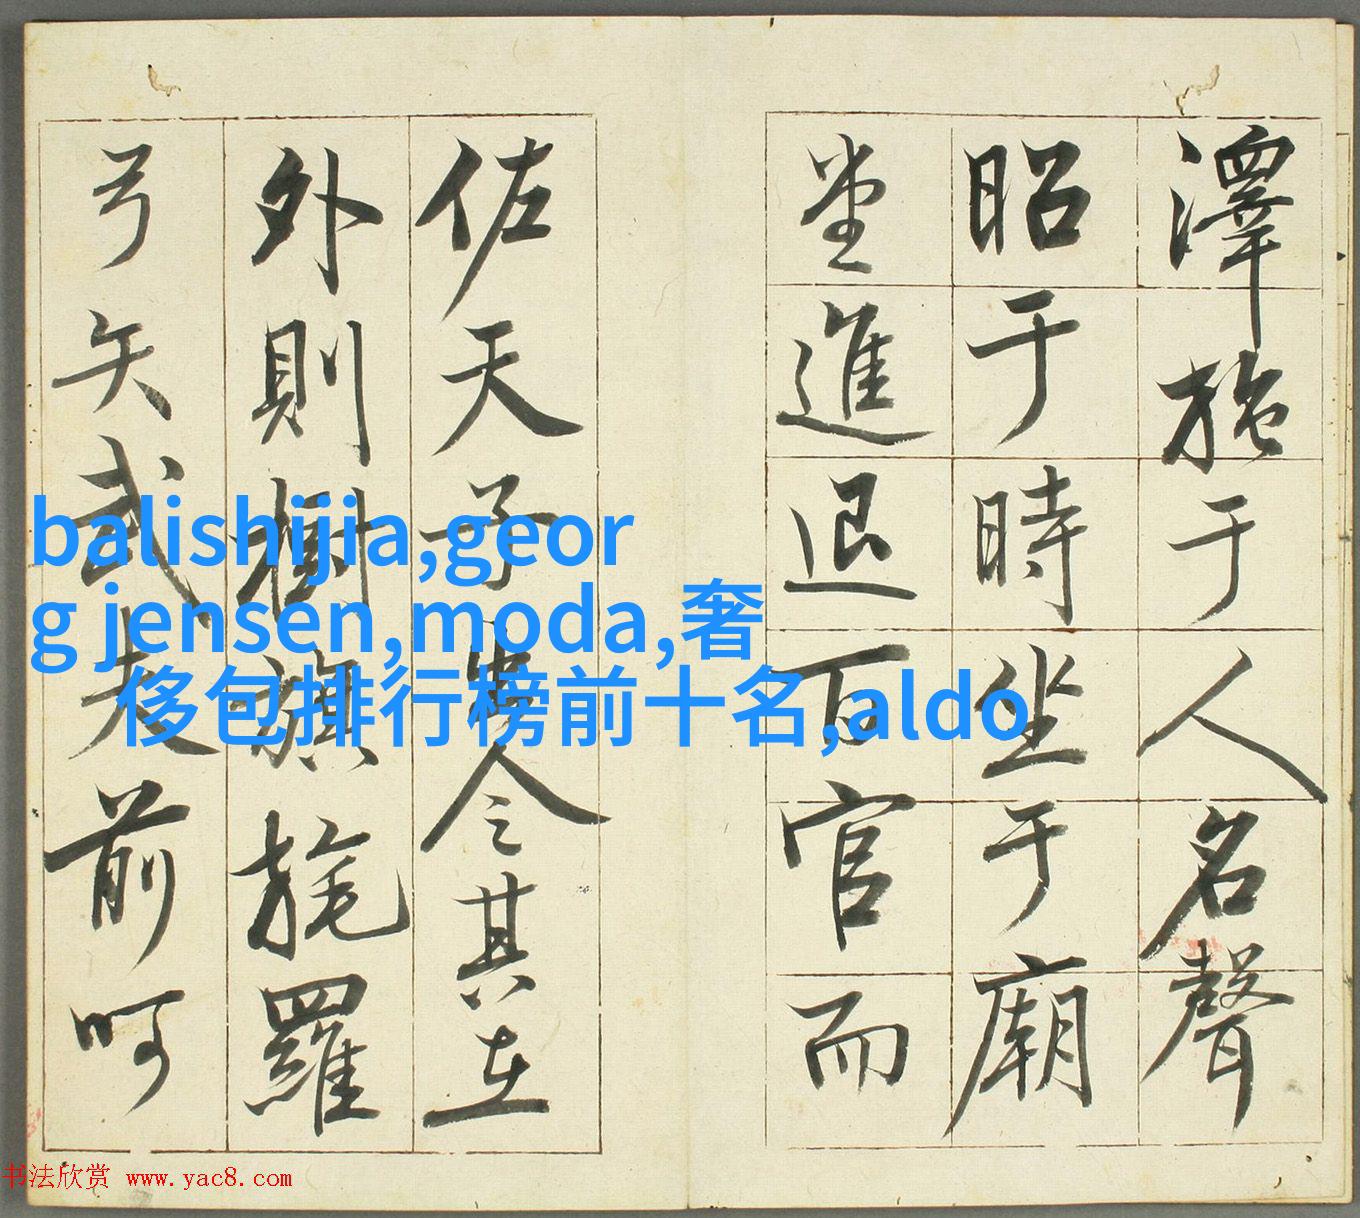 澤施于人名聲
昭于時坐于廟
堂進退百官而
佐天子出令其在
外則樹旗旄羅
弓矢武夫前呵
balishijia,geor
g jensen,moda,奢
侈包排行榜前十名,aldo
书法欣赏 www.yac8.com